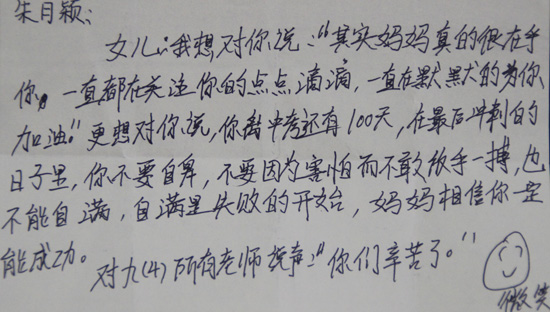 朱月颖：
女儿：我想对你说：“其实妈妈真的很在乎
你，一直都在关注你的点点滴滴，一直在默默的为你
加油。”更想对你说，你离中考还有100天，在最后冲刺的
日子里，你不要自卑，不要因为害怕而不敢放手一搏，也
不能自满，自满是失败的开始，妈妈相信你一定
能成功。
对九(4)所有老师说声：“你们辛苦了。”
微笑